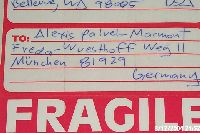 Bellevue, WA 98005 USA
TO: Alexis Patvel-Marmont
Freda-Wuesthoff Weg 11
München 81929
Germany
FRAGILE